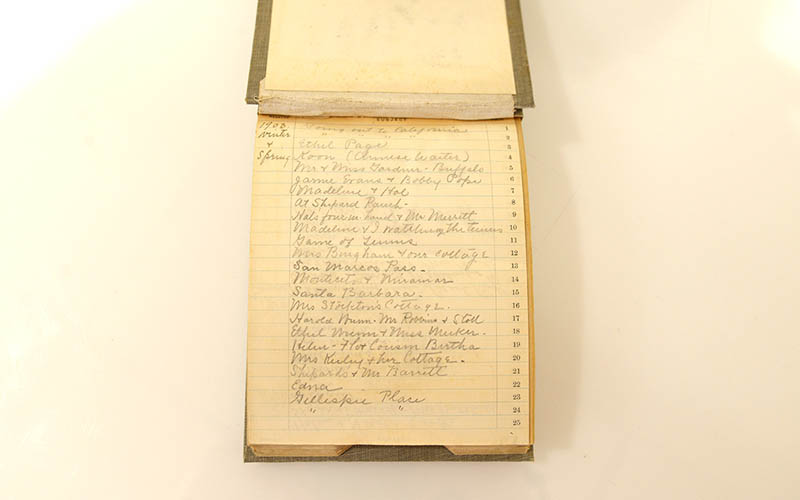 SUBJECT
1903 Going out to California 1
Winter " " " 2
& Ethel Page 3
Spring Koon (Chinese Waiter) 4
Mr & Miss Gardner - Buffalo 5
Jamie Evans & Bobby Pope 6
Madeline & Hal 7
At Shipard Ranch - 8
Hals four in hand & Mr Merritt 9
Madeline & I watching the tennis 10
Game of Tennis 11
Mrs Bingham & our Cottage 12
San Marcos Pass - 13
Montecito & Miramar 14
Santa Barbara - 15
Mrs Stockton's Cottage. 16
Harold Nunn - Mr Robbins & Stoll 17
Ethel & Miss 18
Helen - Flo & Cousin Bertha 19
Mrs & her Cottage - 20
Shipards & Mr Barrett 21
Edna 22
Gillespie Place 23
" " 24
25